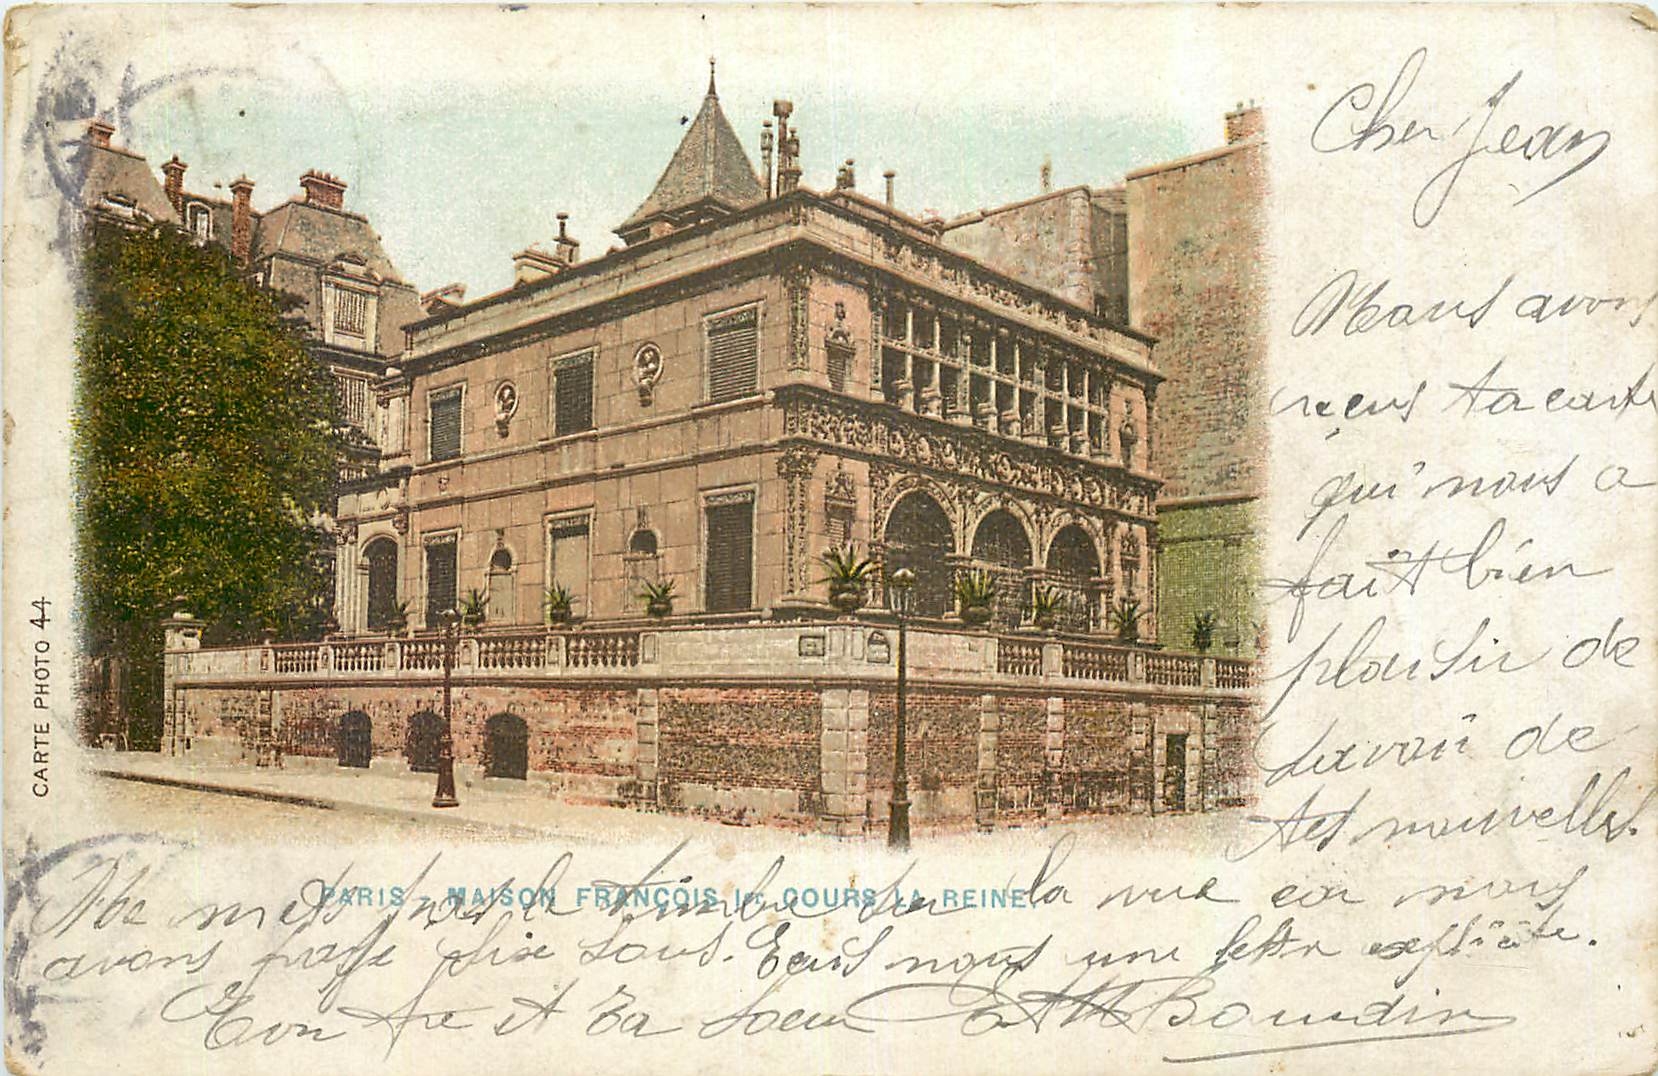 Cher Jean
Nous avons
reçus ta carte
qui nous a
fait bien
plaisir de
savoir de
tes nouvelles.
CARTE PHOTO 44
PARIS - MAISON FRANÇOIS Ier COURS LA REINE.
Ne mets pas le timbre sur la vue car nous
avons payé dix sous. Ecris nous une lettre explicite.
Ton fre et Ta Soeur Boudin